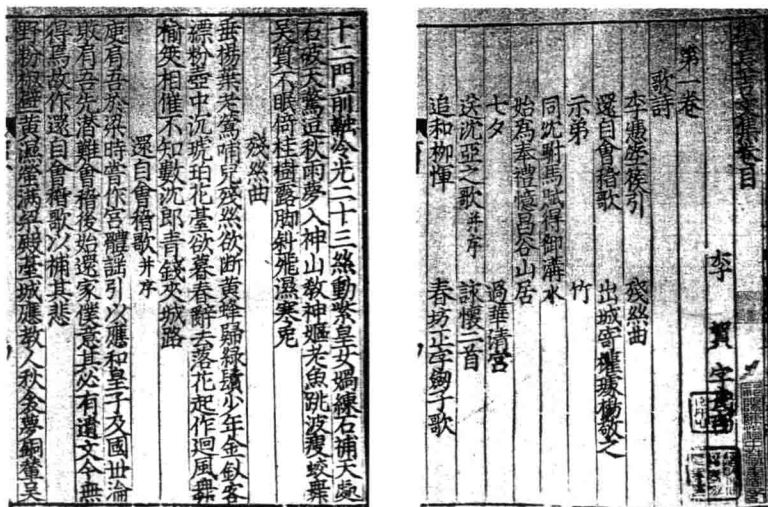 李長吉文集卷目
李賀字長吉
第一卷
歌詩
李憑箜篌引 殘絲曲
還自會稽歌 出城寄權璩楊敬之
示弟 竹
同沈駙馬賦得御溝水
始為奉禮憶昌谷山居
七夕 過華清宮
送沈亞之歌并序 詠懷二首
追和柳惲 春坊正字劒子歌
十二門前融冷光二十三絲動紫皇女媧練石補天處
石破天驚逗秋雨夢入神山教神嫗老魚跳波瘦蛟舞
吳質不眠倚桂樹露脚斜飛濕寒兔
殘絲曲
垂楊葉老鶯哺兒殘絲欲斷黃蜂歸綠鬢少年金釵客
縹粉壺中沉琥珀花臺欲暮春辭去落花起作迴風舞
榆莢相催不知數沈郎青錢夾城路
還自會稽歌并序
庾肩吾於梁時嘗作宮體謠引以應和皇子及國世淪
敗肩吾先潛難會稽後始還家僕意其必有遺文今無
得焉故作還自會稽歌以補其悲
野粉椒壁黃濕螢滿梁殿臺城應教人秋衾夢銅輦吳